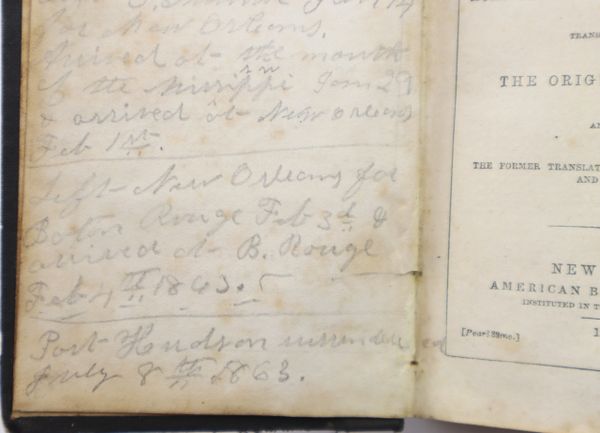 Jan 14
for New Orleans.
Arrived at the mouth
of the Missippi Jan 29
& arrived at New Orleans
Feb 1st.
Left New Orleans for
Baton Rouge Feb 3d &
arrived at B. Rouge
Feb 4th 1863.
Port Hudson surrendered
July 8th 1863.
TRANS
THE ORIG
AN
THE FORMER TRANSLAT
AND
NEW
AMERICAN B
INSTITUTED IN T
[Pearl 32mo.]
1